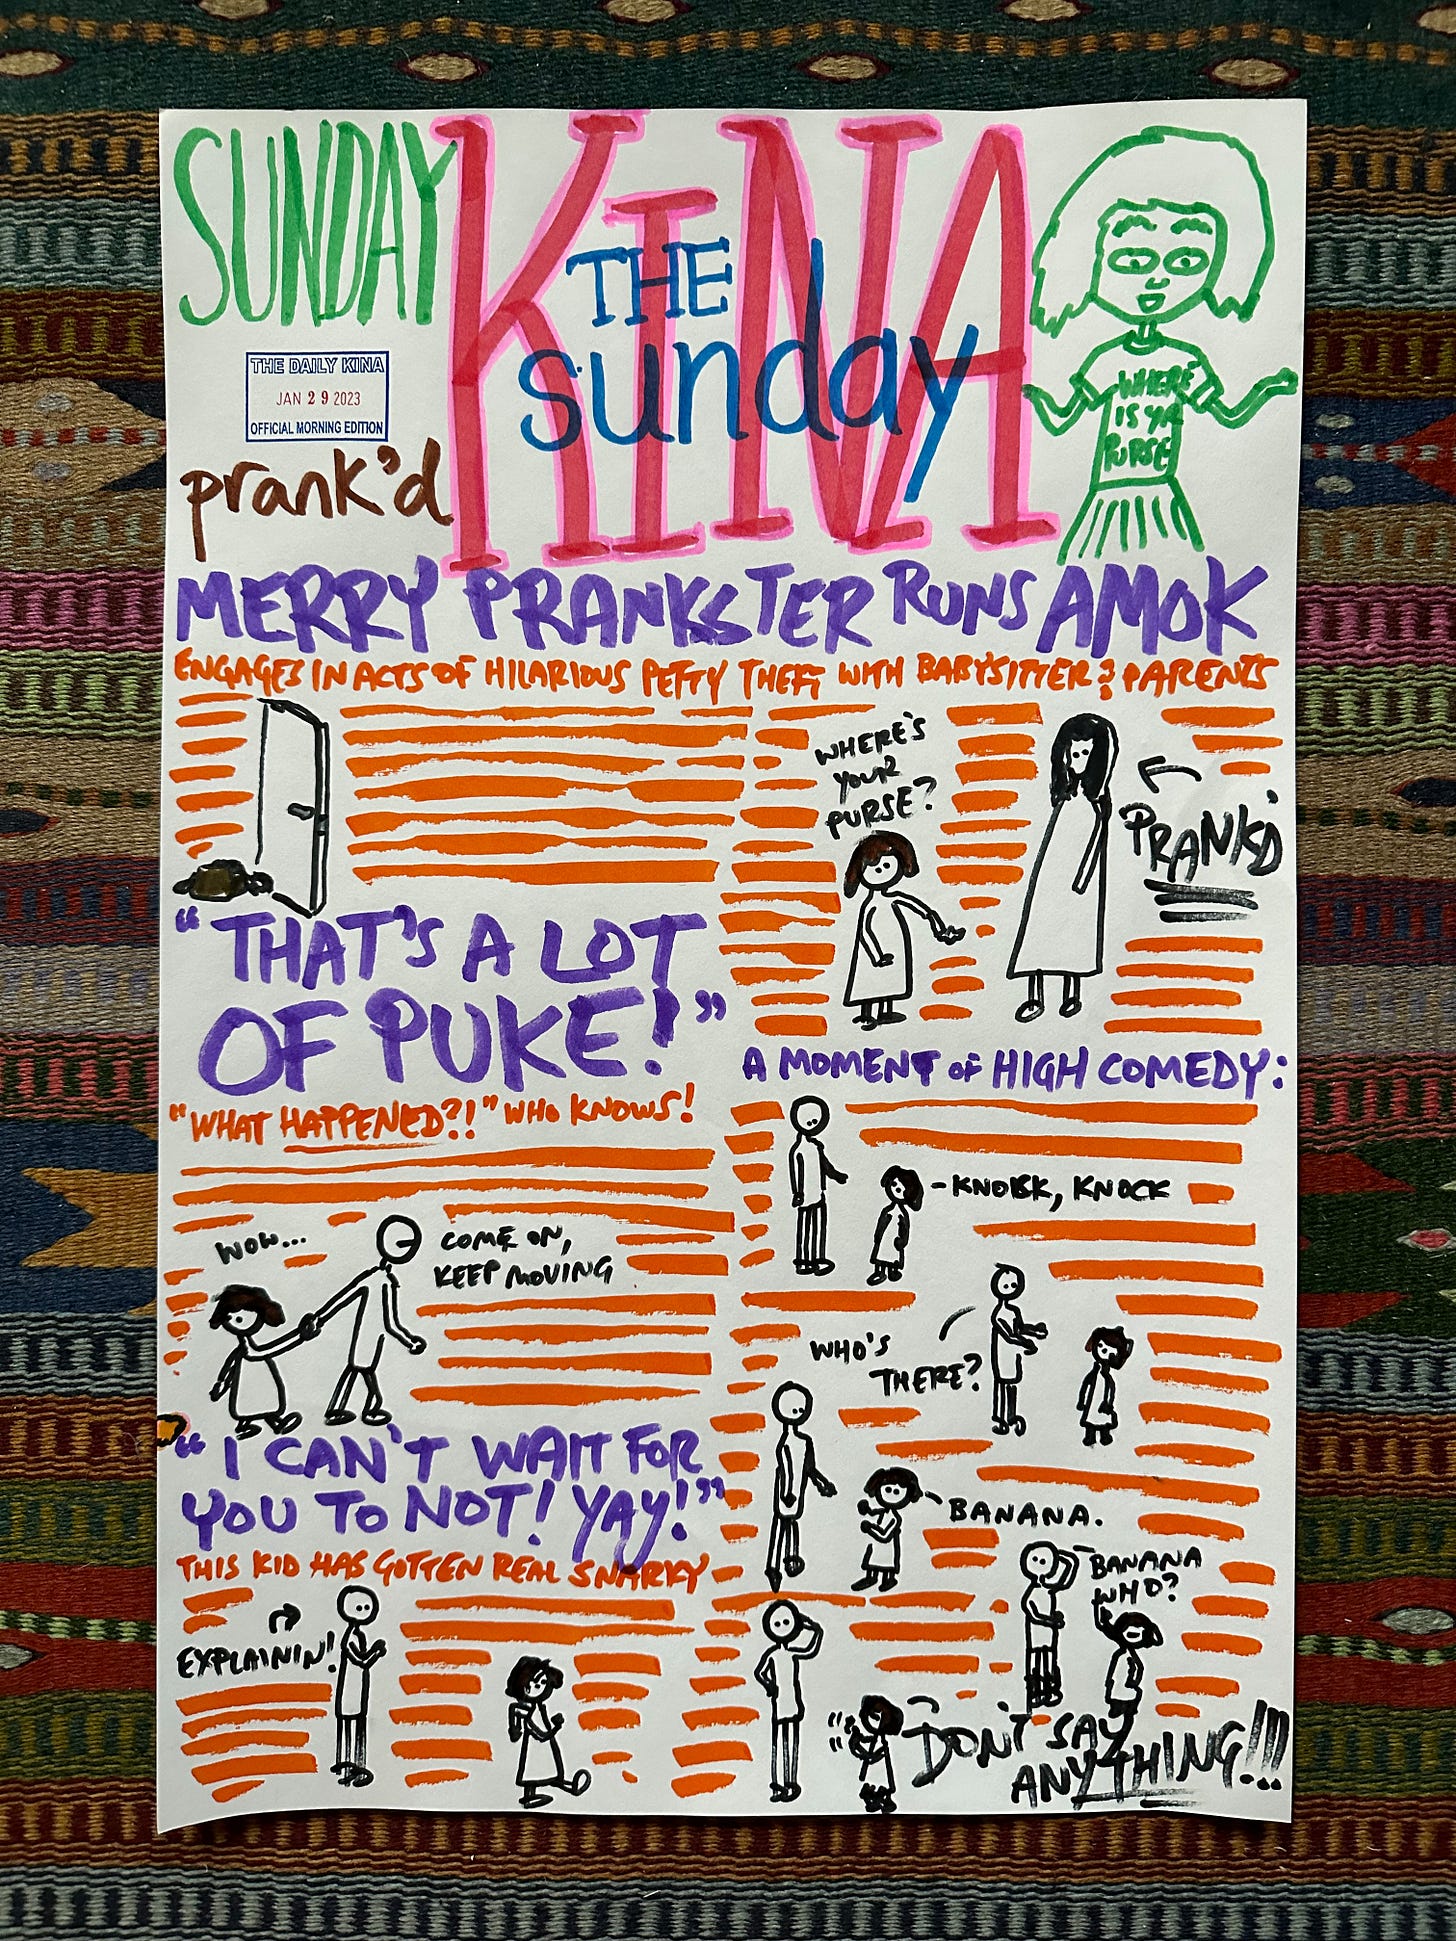 SUNDAY
KINA
THE
sunday
THE DAILY KINA
JAN 29 2023
OFFICIAL MORNING EDITION
prank'd
WHERE
IS YR
PURSE
MERRY PRANKSTER RUNS AMOK
ENGAGES IN ACTS OF HILARIOUS PETTY THEFT WITH BABYSITTER & PARENTS
WHERE'S
YOUR
PURSE?
PRANK'D
"THAT'S A LOT
OF PUKE!"
"WHAT HAPPENED?!" WHO KNOWS!
WOW...
COME ON,
KEEP MOVING
"I CAN'T WAIT FOR
YOU TO NOT! YAY!"
THIS KID HAS GOTTEN REAL SNARKY
EXPLAININ!
A MOMENT OF HIGH COMEDY:
- KNOCK, KNOCK
WHO'S
THERE?
BANANA.
BANANA
WHO?
DON'T SAY
ANYTHING!!!